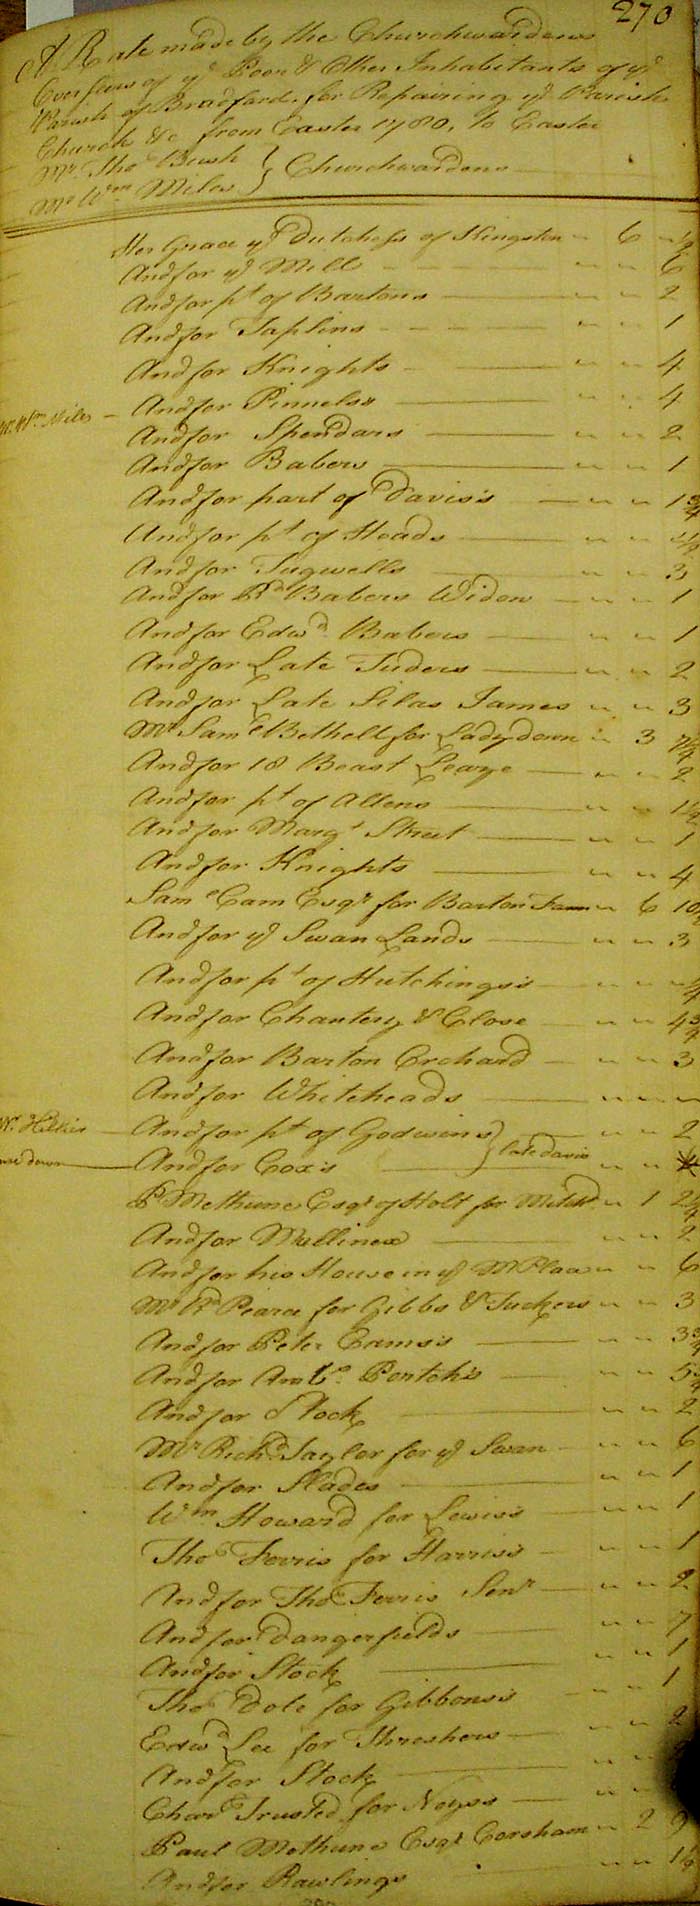 270
A Rate made by the Churchwardens
Overseers of ye Poor & Other Inhabitants of ye
Parish of Bradford, for Repairing ye Parish
Church &c from Easter 1780, to Easter
Mr Thos Bush } Churchwardens
Mr Wm Miles
Her Grace ye Dutchess of Kingston " 6 " ½
And for ye Mill " " 6
And for pt of Bartons " " 2
And for Taplins " " 1
And for Knights " " 4
Mr Wm Miles And for Pinnels " " 4
And for Spendars " " 2
And for Babers " " 1
And for part of Davis's " " 1¾
And for pt of Heads " " ½
And for Tugwells " " 3
And for Rd Babers Widow " " 1
And for Edwd Babers " " 1
And for Late Tuders " " 2
And for Late Silas James " " 3
Mr Saml Bethell for Ladydown " 3
And for 18 Beast Leaze " " 2
And for pt of Allens " " 1½
And for Margt Street " " 1
And for Knights " " 4
Saml Cam Esqr for Barton Farm " 6 10
And for ye Swan Lands " " 3
And for pt of Hutchings's " "
And for Chantery & Close " " 4¾
And for Barton Orchard " " 3
And for Whiteheads " " "
And for pt of Godwins } late Davis " " 2
down And for Cox's " "
P Methuen Esqr of Holt for " 1 2
And for Mullinex " " 2
And for his House in ye " " 6
Mr Rd Pearce for Gibbs & Tuckers " " 3
And for Peter " " 3¾
And for Portch's " " 5
And for Stock " " 2
Mr Richd Taylor for ye Swan " " 6
And for Slades " " 1
Wm Howard for Lewis's " " 1
Thos Ferris for Harris's " " 1
And for Thos Ferris Senr " " 2
And for Dangerfields " " 7
And for Stock " " 1
Thos Dole for Gibbons's " " 1
Edwd Lee for Threshers " " 2
And for Stock " "
Chars Trusted for " "
Paul Methuen Esqr Corsham " 2 9
And for Rawlings " " 1½